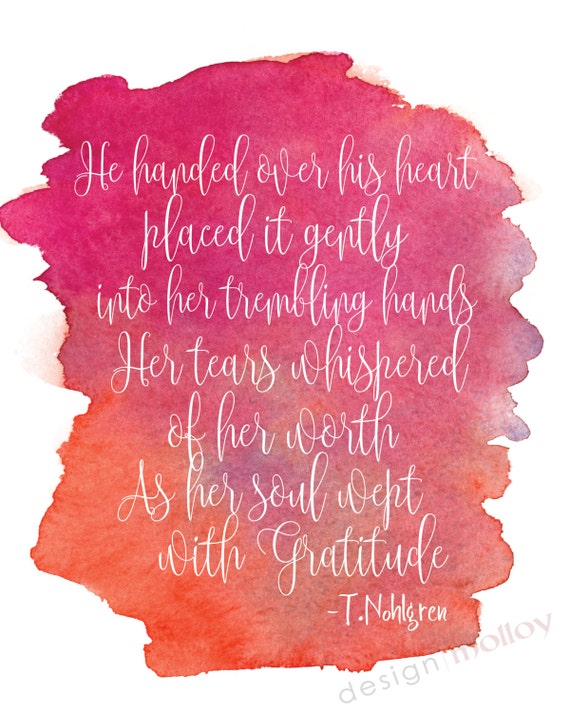 He handed over his heart
placed it gently
into her trembling hands
Her tears whispered
of her worth
As her soul wept
with Gratitude
-T.Nohlgren
design|molloy